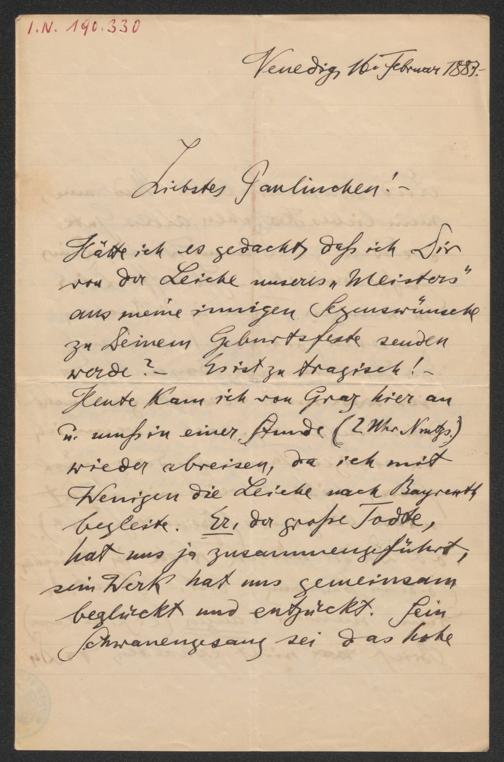 I.N. 190.330
Venedig, 16. Februar 1883.-
Liebstes Paulinchen! -
Hätte ich es gedacht, daß ich Dir
von der Leiche unseres „Meisters"
aus meine innigen Segenswünsche
zu Deinem Geburtsfeste senden
werde? - Es ist zu tragisch! -
Heute kam ich von Graz hier an
u. muß in einer Stunde (2 Uhr Nmttgs.)
wieder abreisen, da ich mit
Wenigen die Leiche nach Bayreuth
begleite. Er, der große Todte,
hat uns ja zusammengeführt,
sein Werk hat uns gemeinsam
beglückt und entzückt. Sein
Schwanengesang sei das hohe